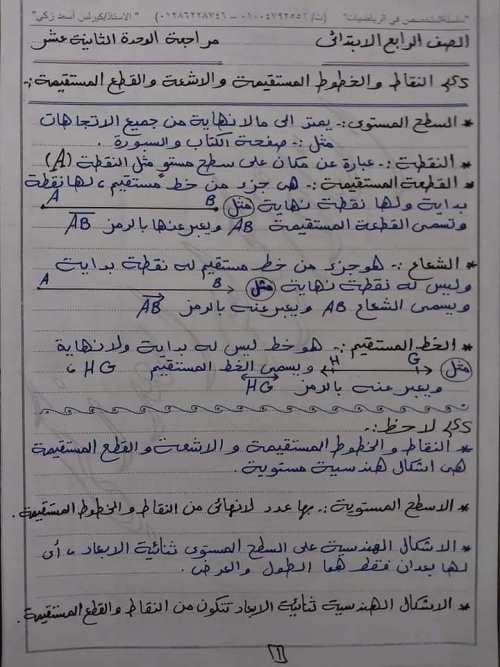 "سلسلة المتخصص في الرياضيات" (ت/ ٠١٠٠٤٧٩٢٥٥٦ – ٠١٢٨٦٢٢٨٧٤٦) "الاستاذ/كيرلس أسعد زكي"
الصف الرابع الابتدائى مراجعة الوحدة الثانية عشر
النقاط والخطوط المستقيمة والاشعة والقطع المستقيمة :-
* السطح المستوى :- يمتد الى مالانهاية من جميع الاتجاهات
مثل :- صفحة الكتاب والسبورة .
* النقطة :- عبارة عن مكان على سطح مستوٍ مثل النقطة (A)
* القطعة المستقيمة :- هى جزء من خط مستقيم ، لها نقطة
بداية ولها نقطة نهاية مثل A B
وتسمى القطعة المستقيمة AB ويعبر عنها بالرمز AB
* الشعاع :- هو جزء من خط مستقيم له نقطة بداية
وليس له نقطة نهاية مثل A B
ويسمى الشعاع AB ويعبر عنه بالرمز AB
* الخط المستقيم :- هو خط ليس له بداية ولا نهاية
مثل H G ويسمى الخط المستقيم HG ،
ويعبر عنه بالرمز HG
لاحظ :-
* النقاط والخطوط المستقيمة والاشعة والقطع المستقيمة
هى اشكال هندسية مستوية .
* الاسطح المستوية :- بها عدد لانهائى من النقاط والخطوط المستقيمة .
* الاشكال الهندسية على السطح المستوى ثنائية الابعاد ، أى
لها بعدان فقط هما الطول والعرض .
* الاشكال الهندسية ثنائية الابعاد تتكون من النقاط والقطع المستقيمة .
1